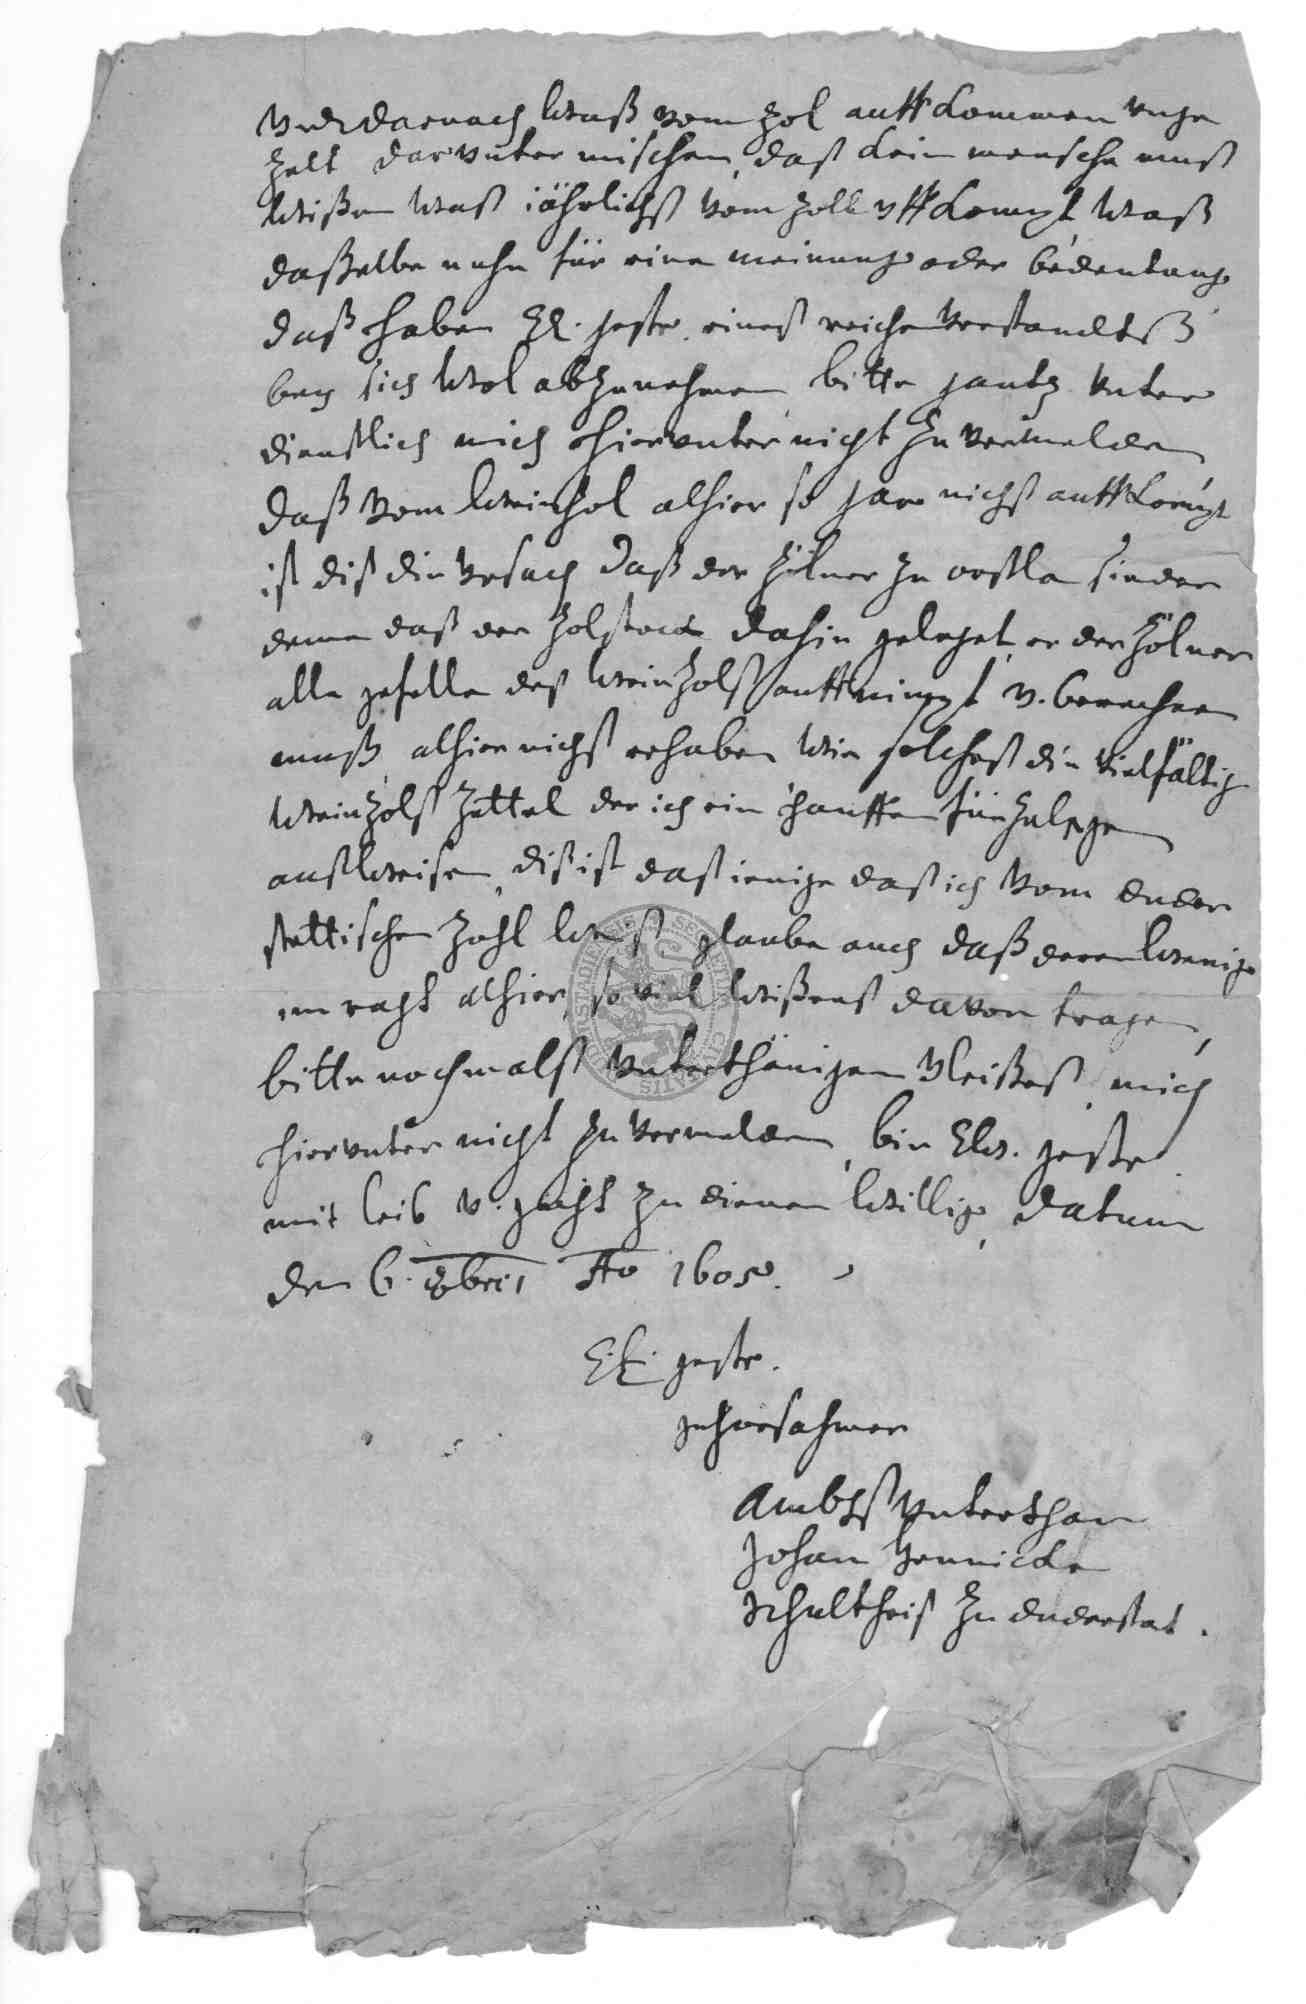 Vnd darnach waß vom zol auffkommen vnge
zelt darvnter mischen, daß kein mensche muß
wißen waß jährlichß vom zoll vffkompt, waß
daßelbe nuhn für eine meinung oder bedeutung
daß haben E. gestr. eineß reichen verstandtß
bey sich wol abzunehmen, bitte gantz vnter
dienstlich mich hirvnter nicht zu vermelden,
daß vom weinzol alhier so gar nichß auffkompt
ist diß die vrsach daß der zölner zu worbis sinder
deme daß der zolstock dahin geleget, er der zölner
alle gefelle deß weinzolß auffnimpt v. berechnen
muß, alhier nichß erhaben wie solcheß die vielfältig
weinzolß zettel der ich ein hauffen fürzulegen
außweisen, diß ist dasjenige daß ich vom duder
stettischen zohl weiß, glaube auch daß deren wenige
im raht alhier, so viel wißenß davon tragen,
bitte nochmalß vnterthänigen vleißeß, mich
hirvnter nicht zu vermelden, bin Ew. gestr.
mit leib v. guht zu dienen willig, datum
den 6. 8bris Ao 1605.
E. E. gestr.
gehorsahmer
Ambtß vnterthan
Johan Hennicke
schultheiß zu duderstat.